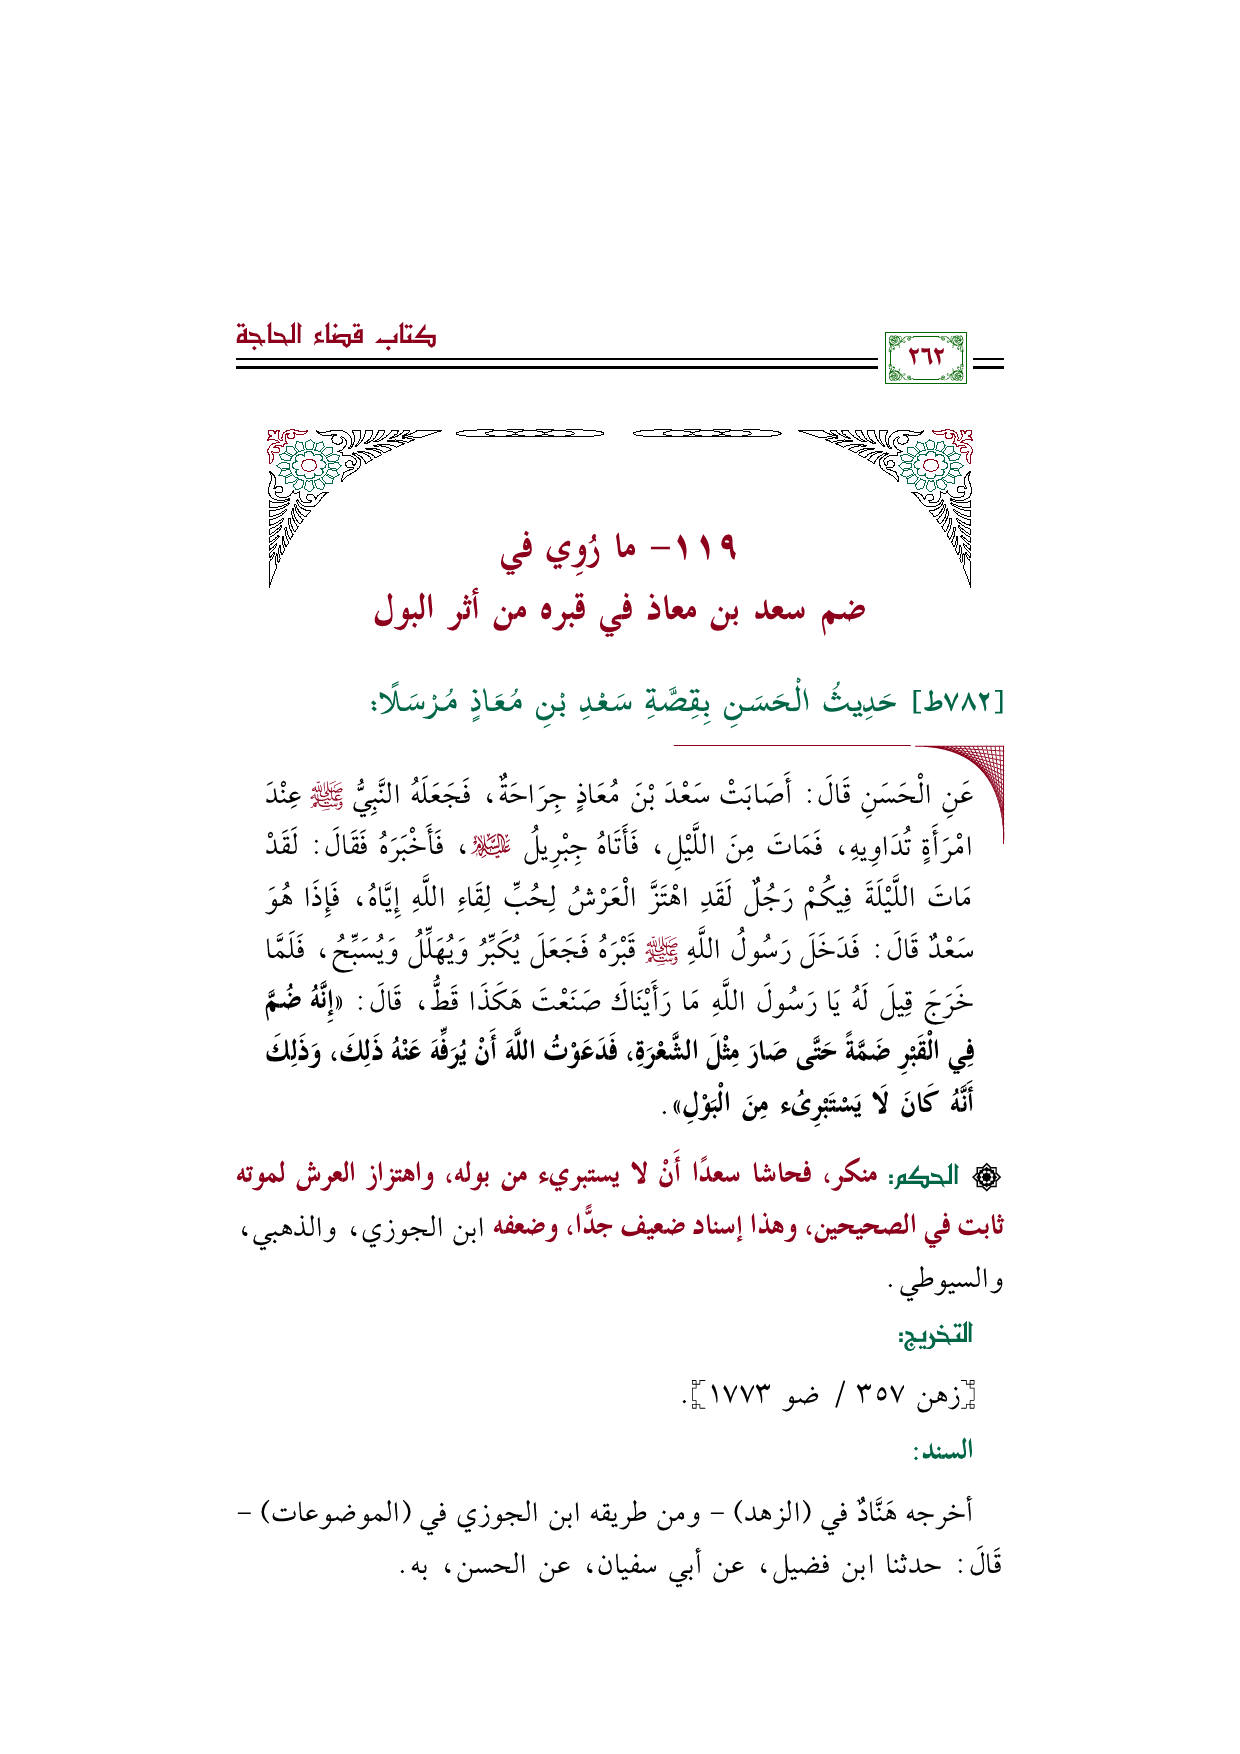 كتاب قضاء الحاجة
٢٦٢
١١٩- ما رُوِي في
ضم سعد بن معاذ في قبره من أثر البول
[٧٨٢ط] حَدِيثُ الْحَسَنِ بِقِصَّةِ سَعْدِ بْنِ مُعَاذٍ مُرْسَلًا:
عَنِ الْحَسَنِ قَالَ: أَصَابَتْ سَعْدَ بْنَ مُعَاذٍ جِرَاحَةٌ، فَجَعَلَهُ النَّبِيُّ ﷺ عِنْدَ
امْرَأَةٍ تُدَاوِيهِ، فَمَاتَ مِنَ اللَّيْلِ، فَأَتَاهُ جِبْرِيلُ عليه السلام، فَأَخْبَرَهُ فَقَالَ: لَقَدْ
مَاتَ اللَّيْلَةَ فِيكُمْ رَجُلٌ لَقَدِ اهْتَزَّ الْعَرْشُ لِحُبِّ لِقَاءِ اللَّهِ إِيَّاهُ، فَإِذَا هُوَ
سَعْدٌ قَالَ: فَدَخَلَ رَسُولُ اللَّهِ ﷺ قَبْرَهُ فَجَعَلَ يُكَبِّرُ وَيُهَلِّلُ وَيُسَبِّحُ، فَلَمَّا
خَرَجَ قِيلَ لَهُ يَا رَسُولَ اللَّهِ مَا رَأَيْنَاكَ صَنَعْتَ هَكَذَا قَطُّ، قَالَ: «إِنَّهُ ضُمَّ
فِي الْقَبْرِ ضَمَّةً حَتَّى صَارَ مِثْلَ الشَّعْرَةِ، فَدَعَوْتُ اللَّهَ أَنْ يُرَفِّهَ عَنْهُ ذَلِكَ، وَذَلِكَ
أَنَّهُ كَانَ لَا يَسْتَبْرِىُء مِنَ الْبَوْلِ».
الحكم: منكر، فحاشا سعدًا أَنْ لا يستبريء من بوله، واهتزاز العرش لموته
ثابت في الصحيحين، وهذا إسناد ضعيف جدًّا، وضعفه ابن الجوزي، والذهبي،
والسيوطي.
التخريج:
[زهن ٣٥٧ / ضو ١٧٧٣].
السند:
أخرجه هَنَّادٌ في (الزهد) - ومن طريقه ابن الجوزي في (الموضوعات) -
قَالَ: حدثنا ابن فضيل، عن أبي سفيان، عن الحسن، به.